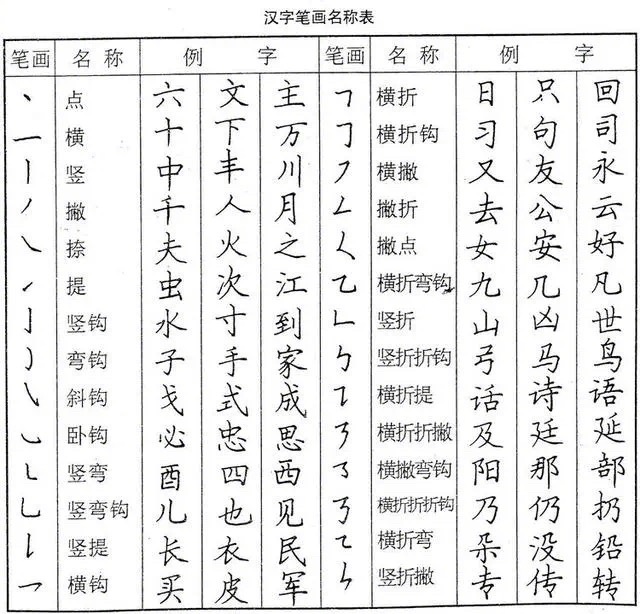 汉字笔画名称表
笔画 名称 例 字 笔画 名称 例 字
丶 点 六 文 主 ㇕ 横折 日 只 回
一 横 十 下 万 ㇆ 横折钩 习 句 司
丨 竖 中 丰 川 ㇇ 横撇 又 友 永
丿 撇 千 人 月 ㇜ 撇折 去 公 云
㇏ 捺 夫 火 之 ㇛ 撇点 女 安 好
㇀ 提 虫 次 江 ㇈ 横折弯钩 九 几 凡
亅 竖钩 水 寸 到 ㇗ 竖折 山 凶 世
㇁ 弯钩 子 手 家 ㇉ 竖折折钩 弓 马 鸟
㇂ 斜钩 戈 式 成 ㇊ 横折提 话 诗 语
㇃ 卧钩 必 忠 思 ㇋ 横折折撇 及 廷 延
㇄ 竖弯 酉 四 西 ㇌ 横撇弯钩 阳 那 部
㇟ 竖弯钩 儿 也 见 ㇡ 横折折折钩 乃 仍 扔
㇙ 竖提 长 衣 民 ㇍ 横折弯 朵 没 铅
㇖ 横钩 买 皮 军 ㇞ 竖折撇 专 传 转